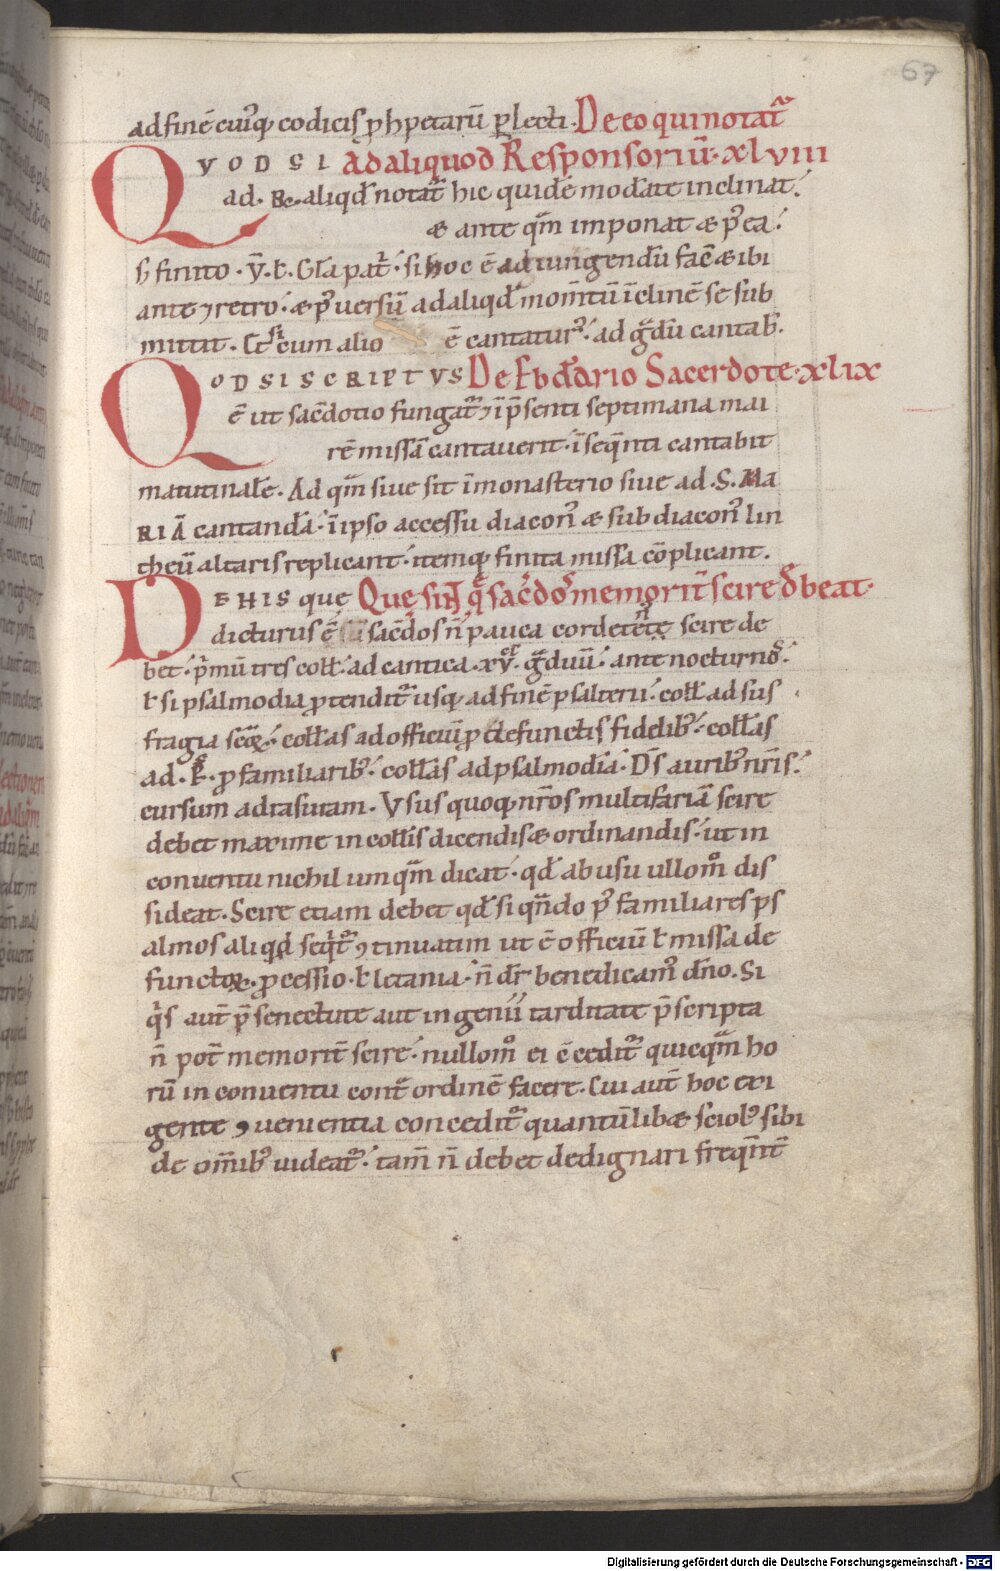 67
ad finē cuiꝰq; codicis ꝓphetarū ꝑlecti. De eo qui notat᷑
QVOD SI Ad aliquod Responsoriū. xlviii
ad. R. aliqđ notat᷑ hic quidē moďate inclinat.
& ante qͣm imponat & pꝰ ea.
ſꝫ finito. v̄. ł. Gła pat͛. si hoc ē adiungendū facē & ibi
ante ⁊ retro. & pꝰ versū ad aliqđ mom̄tū īclinē se sub
mittit. Ct͛ si cum alio ē cantaturꝰ. ad gͣdū cantab͛.
QVOD SI SCRIPTVS De Ebďdario Sacerdote. xlix
ē ut sac̄dotio fungat᷑ ⁊ ī p̄senti septimana mai
rē missā cantauerit. ī seqn̄ti cantabit
matutinalē. Ad qͣm siue sit ī monasterio siue ad. S. MA
RIĀ cantandā. ī ipso accessu diaconꝰ & subdiaconꝰ lin
theū altaris replicant. itemq; finita missa cōplicant.
DE HIS que Quę sint q̄ sac͛dos memorit͛ scire debeat.
dicturus ē sac̄dos n̄ pauca corde tenēte scire de
bet. p̄mū tres coll̄. ad cantica. xv. gͣduū. ante nocturnos.
ł si psalmodia ꝓtendit᷑ usq; ad finē psalterii. coll̄ ad suf
fragia scōꝝ. coll̄as ad officiū ꝓ defunctis fidelibꝰ. coll̄as
ad. k̄. ꝓ familiaribꝰ. coll̄as ad psalmodiā. Ds̄ auribꝰ nr̄is.
cursum ad rasuram. Vsus quoq; nr̄os multifariā scire
debet maxime in coll̄is dicendis & ordinandis. ut in
conuentu nichil umqͣm dicat. qđ ab usu ullomͦ dis
sideat. Scire etiam debet qđ si qͣndo pꝰ familiares ps
almos aliqđ seqͥt᷑ ꝯtinuatim ut ē officiū ł missa de
functoꝝ. ꝓcessio. ł letania. n̄ dr̄ benedicamꝰ dn̄o. Si
qͥs aut̄ p̄ senectute aut ingenii tarditate p̄scripta
n̄ pot̄ memorit͛ scire. nullomͦ ei ēcedit᷑ quicqͣm ho
rū in conuentu contͣ ordinē facere. Cui aut̄ hoc exi
gente ꝯuenientia concedit᷑ quantūlib& sciolꝰ sibi
de om̄ibꝰ uideat᷑. tam̄ n̄ debet dedignari freqn̄t͛
Digitalisierung gefördert durch die Deutsche Forschungsgemeinschaft - DFG